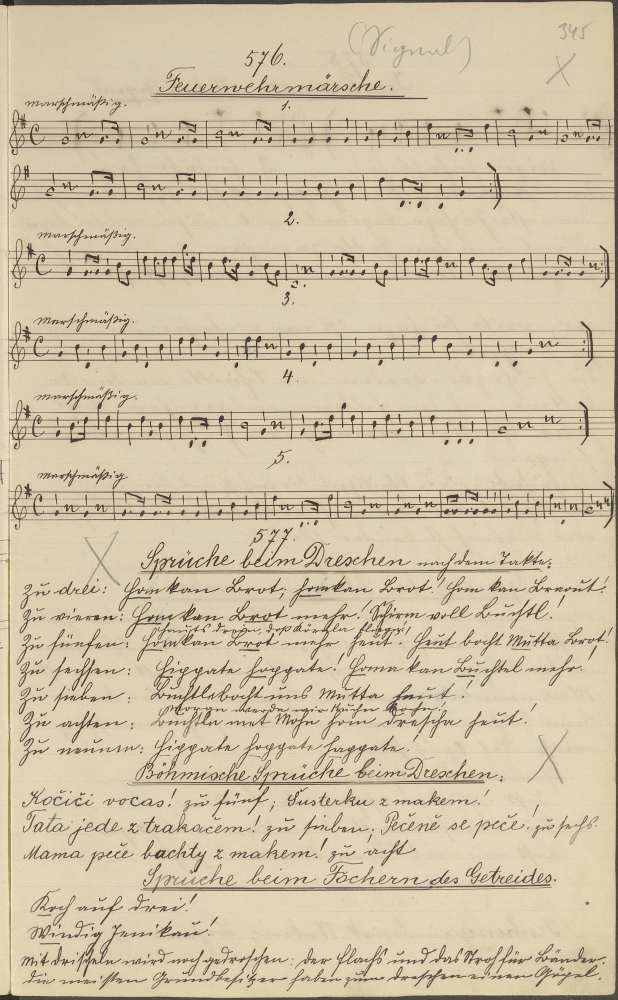 345
(Signal)
576.
Feuerwehrmärsche.
marschmäßig. 1.
2.
marschmäßig.
3.
marschmäßig.
4.
marschmäßig.
5.
marschmäßig
577.
Sprüche beim Dreschen nach dem Takte:
Zu drei: Hom kan Brot, hom kan Brot! Hom kan Braout!
Zu vieren: Hom kan Brot mehr! Schirm voll Buchtl!
Zu fünfen: Hom kan Brot mehr heut! Heut bocht Mutta Brot!
Zu sechsen: Hippate hoppate! Homa kan Buchtel mehr.
Zu sieben: Buchtla bocht uns Mutta heut!
Zu achten: Buchtla met Mohn hom drescha heut!
Zu neunen: Hippate hoppate happate.
Böhmische Sprüche beim Dreschen:
Kočičí vocas! zu fünf; Šusterku z makem!
Tata jede z trakačem! zu sieben; Pečeně se peče! zu sechs.
Mama peče bachty z makem! zu acht
Sprüche beim Fochern des Getreides.
Koch auf drei!
Windig Jenikau!
Mit Drischeln wird noch gedroschen: der Flachs und das Stroh für Bänder.
Die meisten Grundbesitzer haben zum Dreschen einen Göpel.